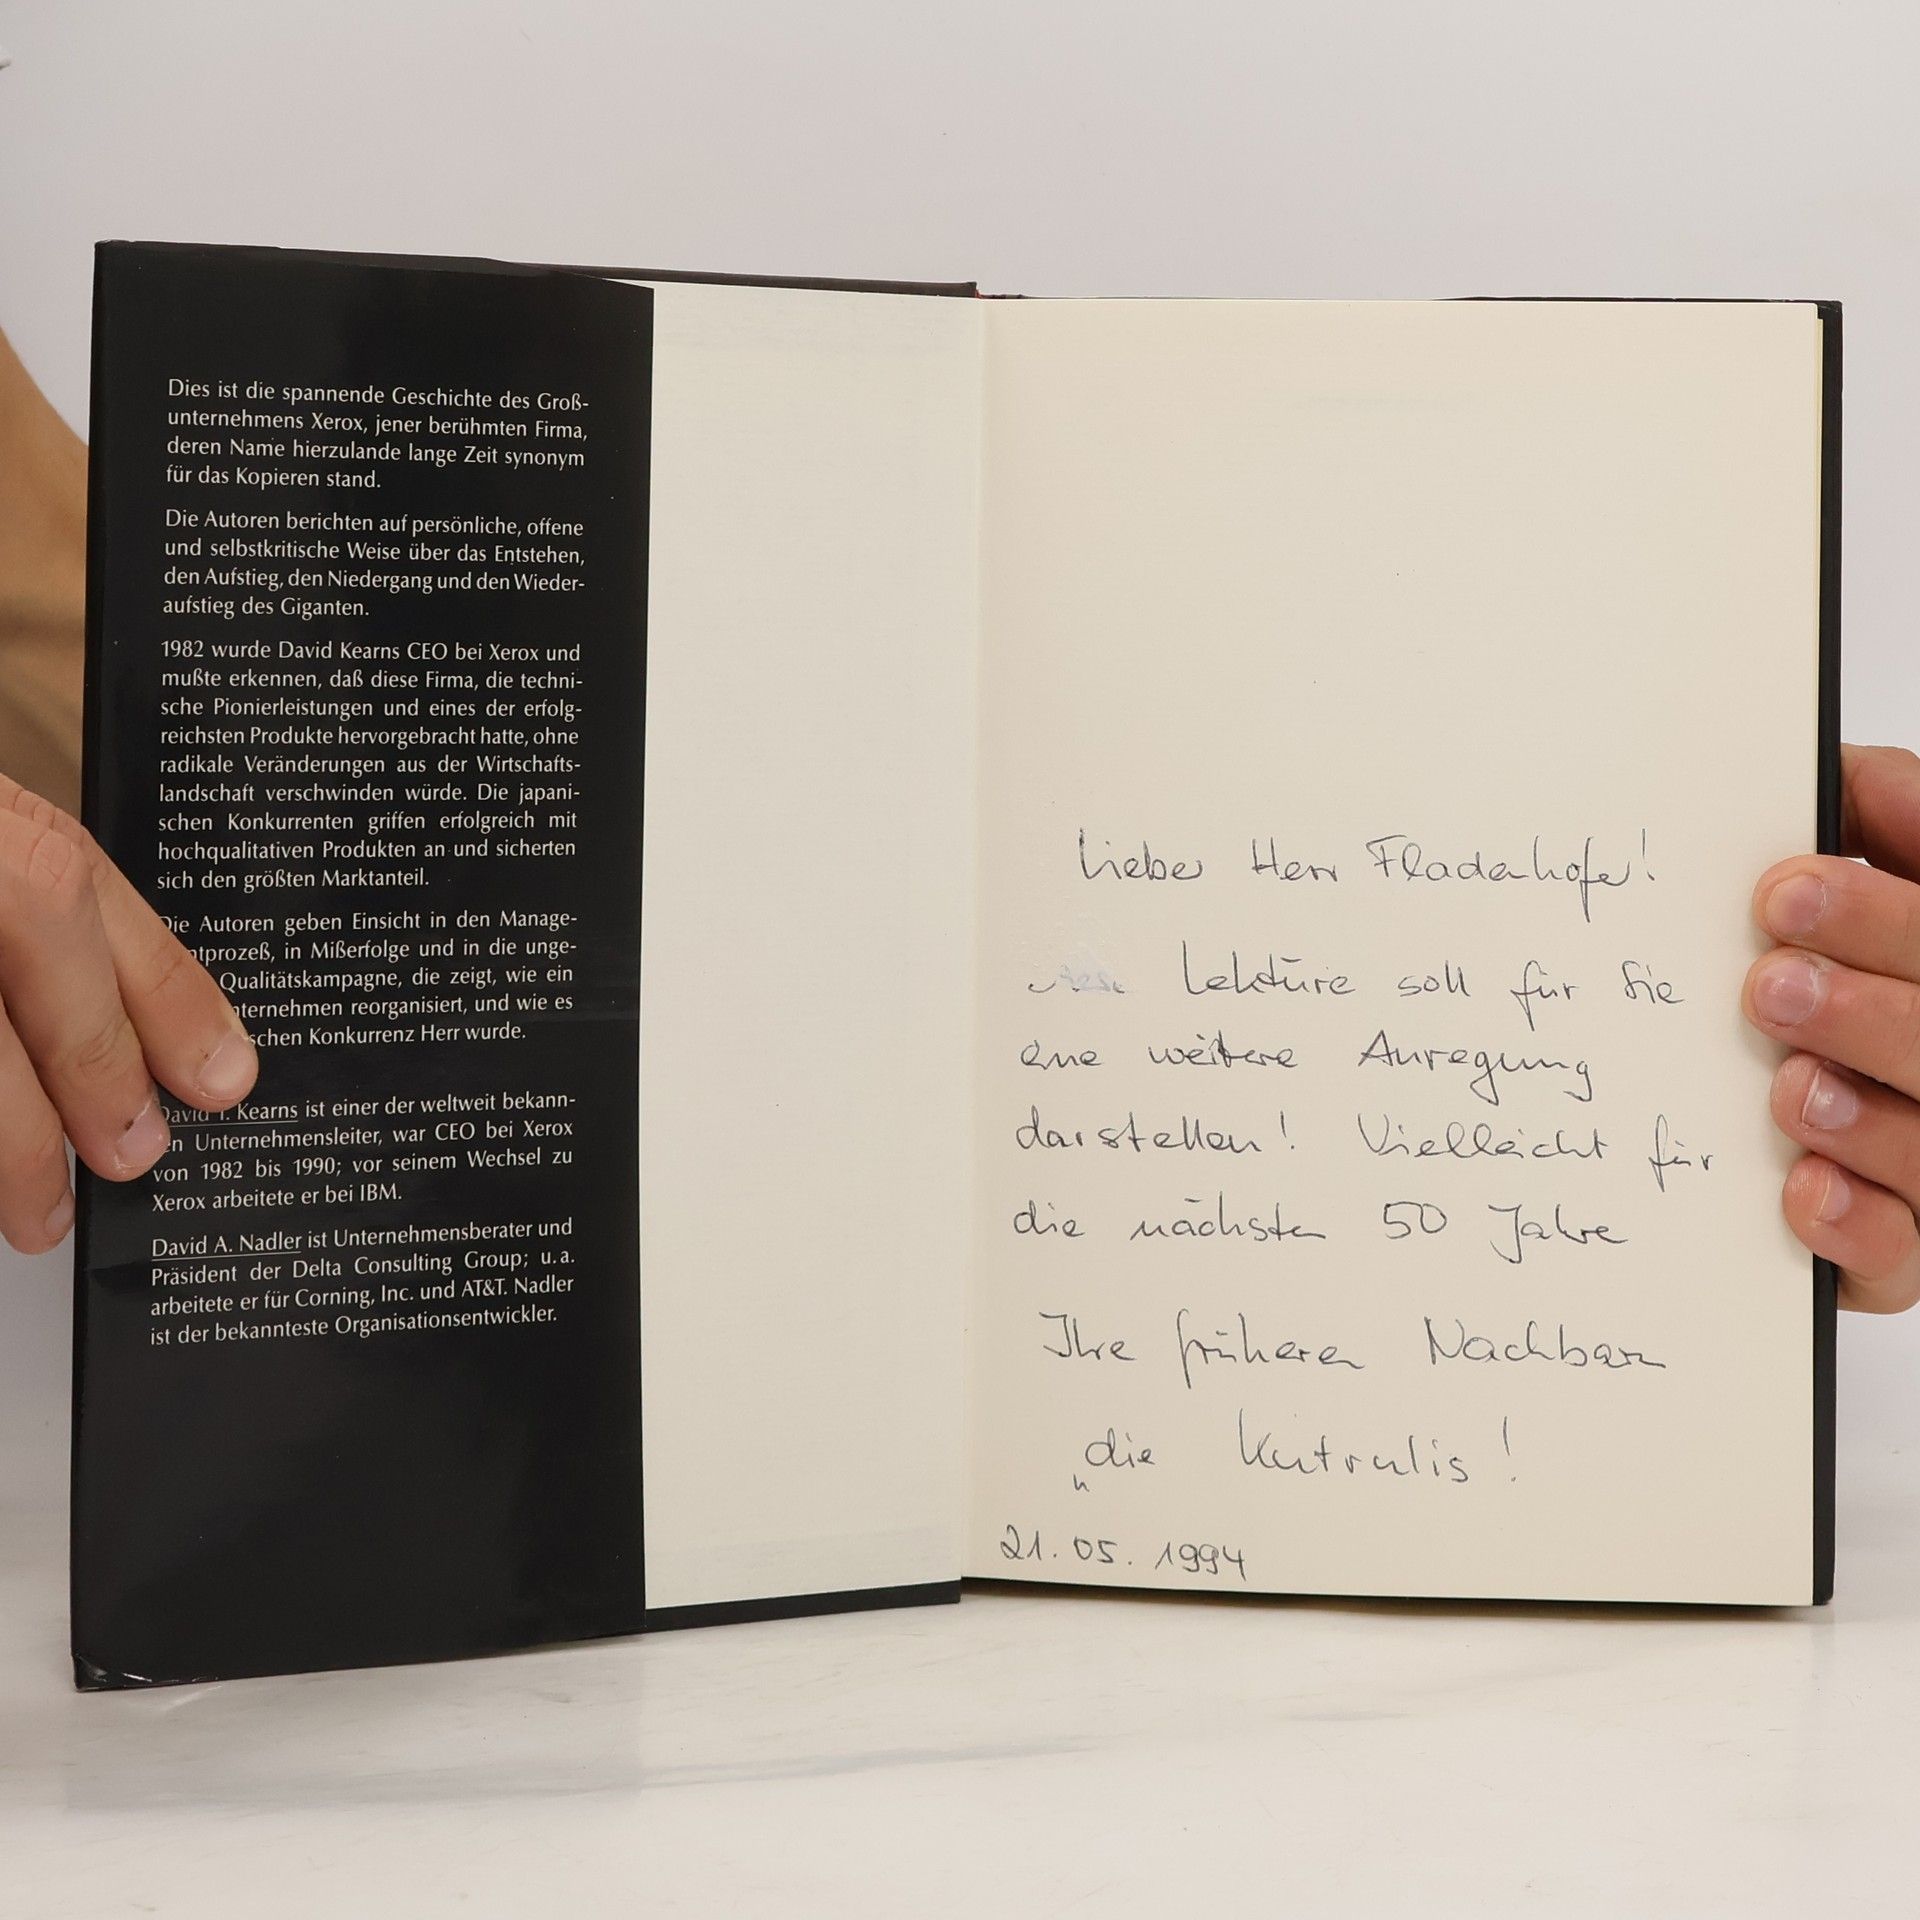 Dies ist die spannende Geschichte des Groß-
unternehmens Xerox, jener berühmten Firma,
deren Name hierzulande lange Zeit synonym
für das Kopieren stand.
Die Autoren berichten auf persönliche, offene
und selbstkritische Weise über das Entstehen,
den Aufstieg, den Niedergang und den Wieder-
aufstieg des Giganten.
1982 wurde David Kearns CEO bei Xerox und
mußte erkennen, daß diese Firma, die techni-
sche Pionierleistungen und eines der erfolg-
reichsten Produkte hervorgebracht hatte, ohne
radikale Veränderungen aus der Wirtschafts-
landschaft verschwinden würde. Die japani-
schen Konkurrenten griffen erfolgreich mit
hochqualitativen Produkten an und sicherten
sich den größten Marktanteil.
Die Autoren geben Einsicht in den Manage-
ntprozeß, in Mißerfolge und in die unge-
Qualitätskampagne, die zeigt, wie ein
nternehmen reorganisiert, und wie es
schen Konkurrenz Herr wurde.
David T. Kearns ist einer der weltweit bekann-
en Unternehmensleiter, war CEO bei Xerox
von 1982 bis 1990; vor seinem Wechsel zu
Xerox arbeitete er bei IBM.
David A. Nadler ist Unternehmensberater und
Präsident der Delta Consulting Group; u. a.
arbeitete er für Corning, Inc. und AT&T. Nadler
ist der bekannteste Organisationsentwickler.
Lieber Herr Fladenhofer!
Lektüre soll für Sie
eine weitere Anregung
darstellen! Vielleicht für
die nächsten 50 Jahre
Ihre früheren Nachbarn
„die !
21. 05. 1994